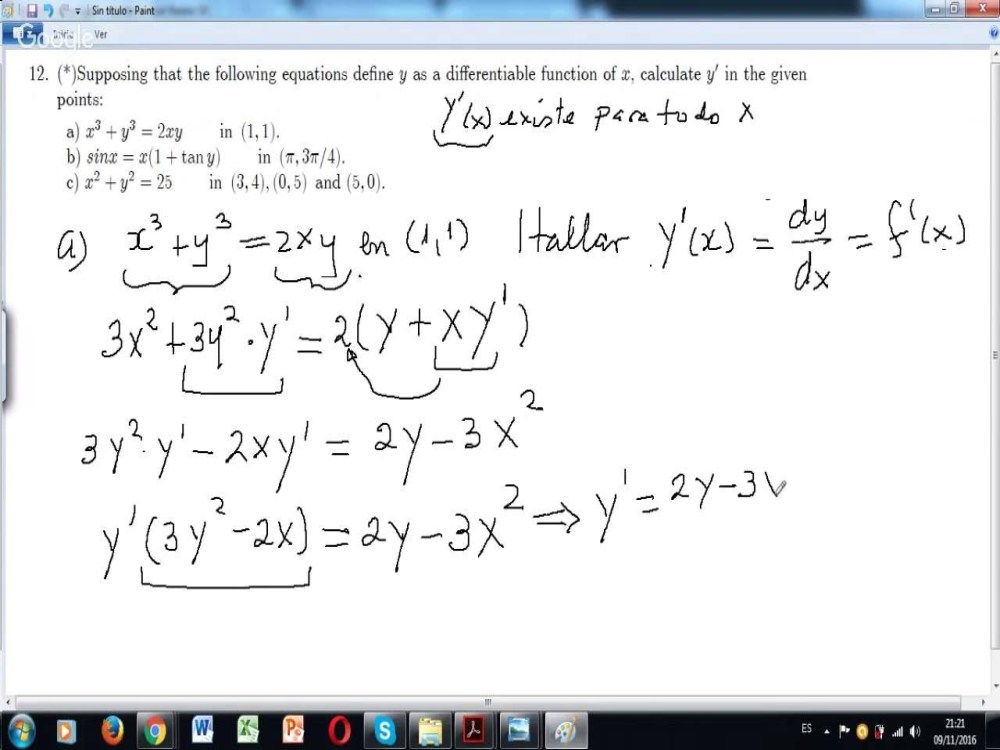 Sin título - Paint
Google
Ver
12. (*)Supposing that the following equations define y as a differentiable function of x, calculate y′ in the given
points:
y'(x) existe para todo x
a) x³ + y³ = 2xy in (1, 1).
b) sinx = x(1 + tan y) in (π, 3π/4).
c) x² + y² = 25 in (3, 4), (0, 5) and (5, 0).
a) x³ + y³ = 2xy en (1,1) Hallar y'(x) = dy/dx = f'(x)
3x² + 3y² · y' = 2(y + xy')
3y² · y' - 2xy' = 2y - 3x²
y'(3y² - 2x) = 2y - 3x² ⇒ y' = 2y - 3
ES
21:21
09/11/2016